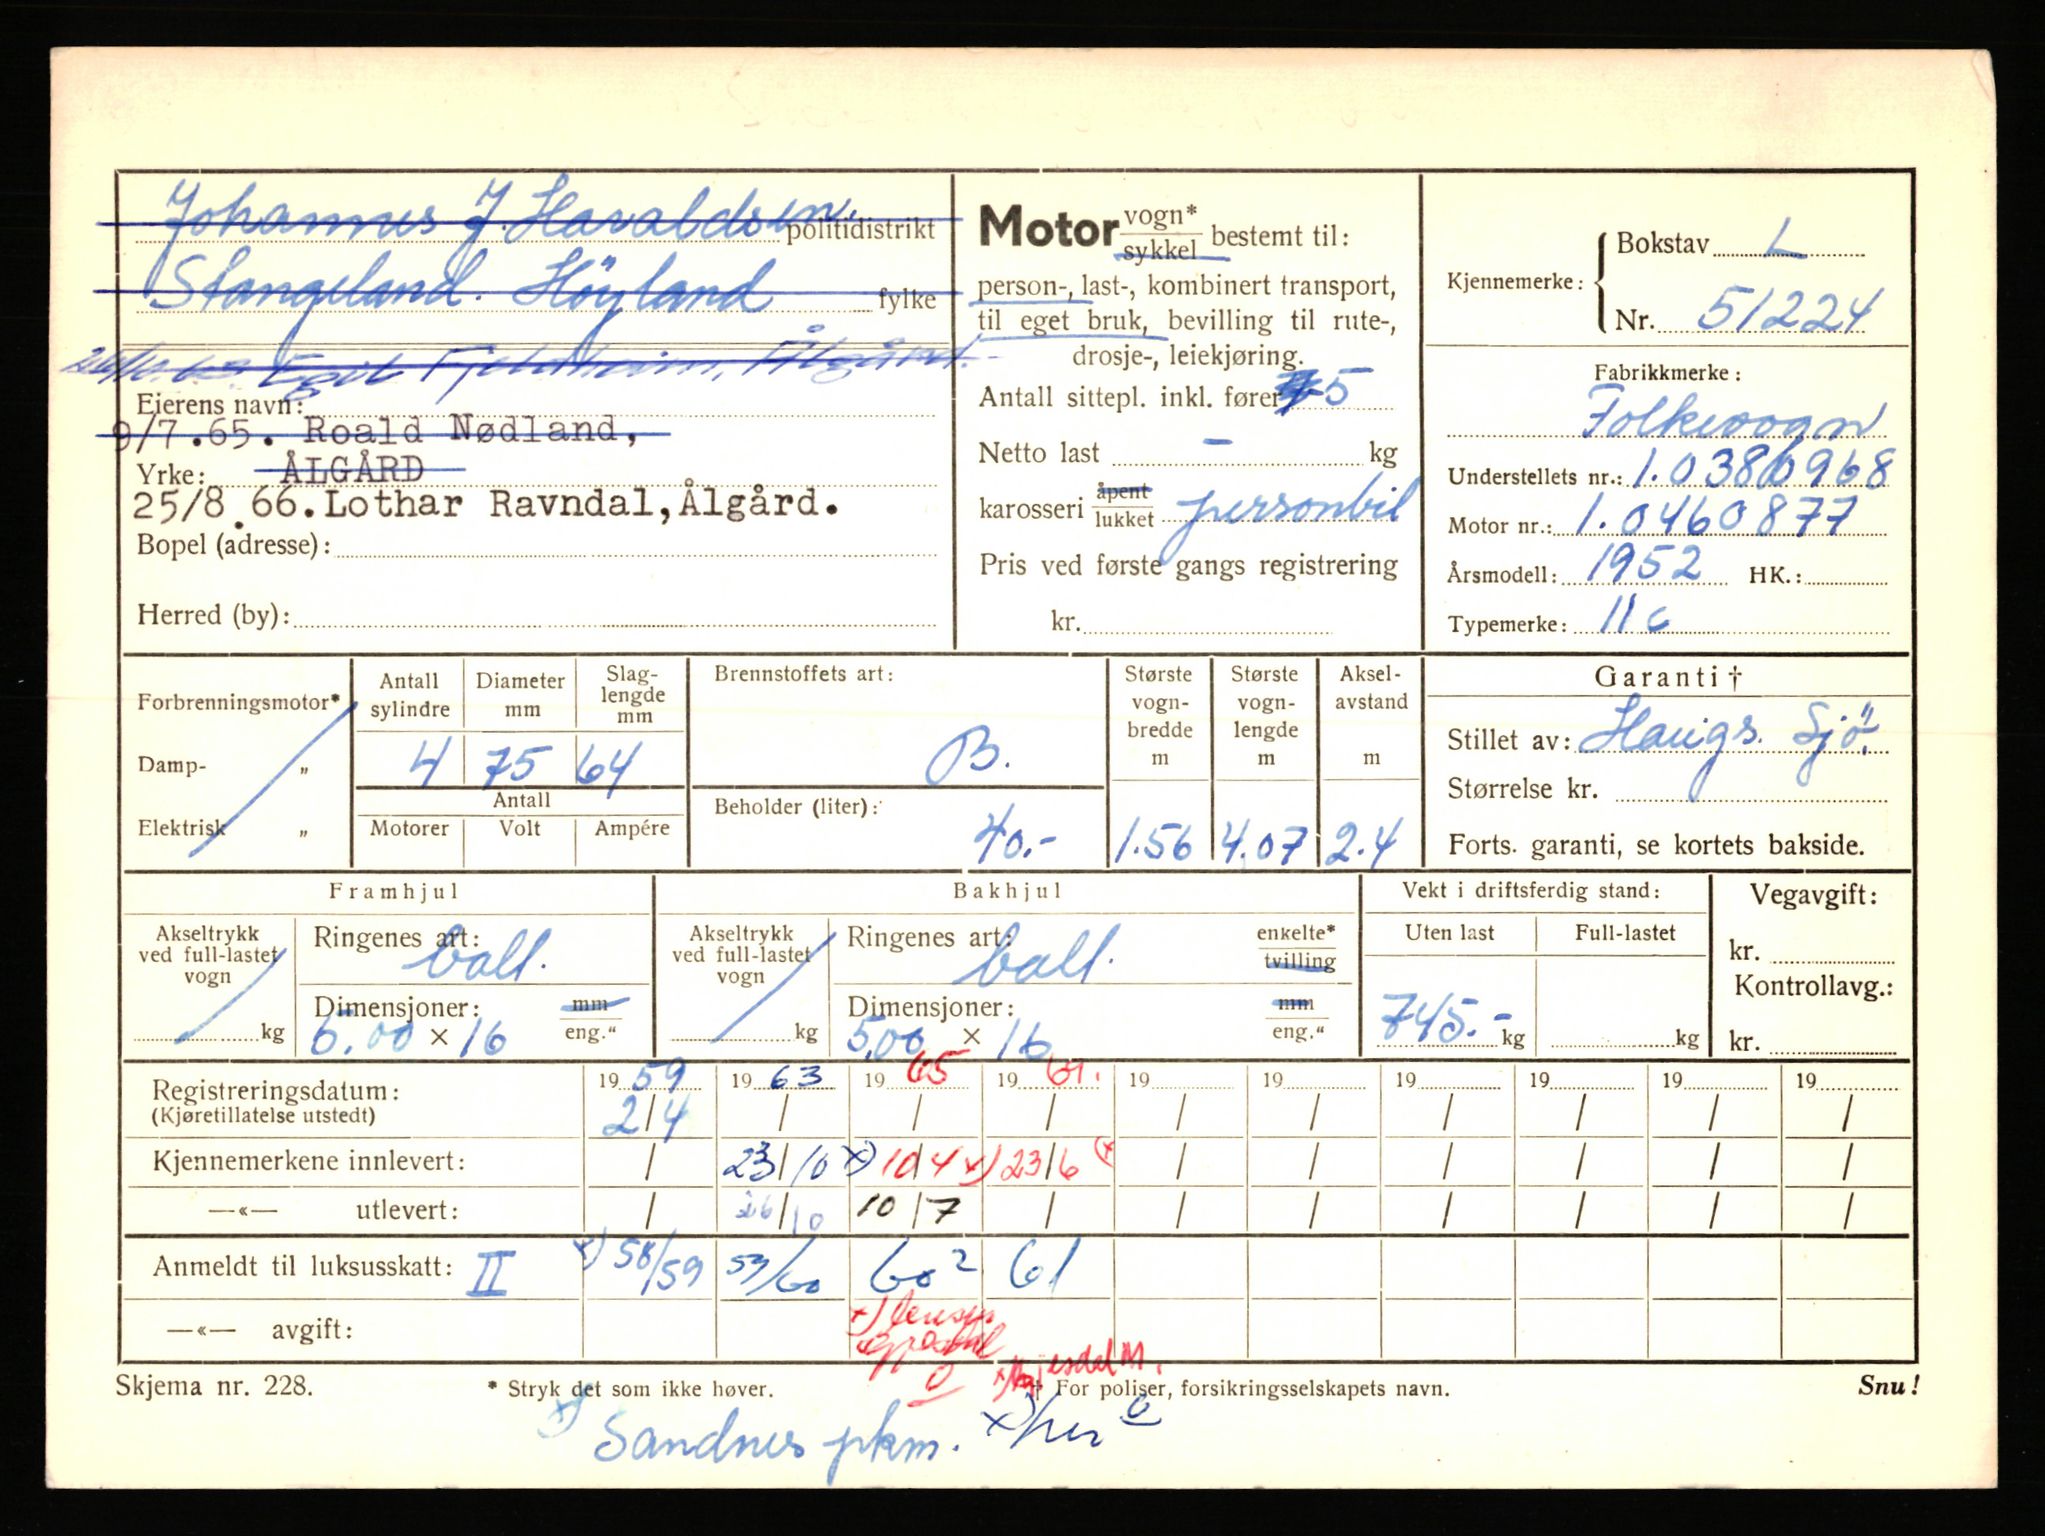 Johannes J. Haraldsen, politidistrikt
Stangeland. Höyland fylke
Egil Fjeldheim, Ålgård.
Eierens navn:
9/7.65. Roald Nødland,
Yrke: ÅLGÅRD
25/8.66. Lothar Ravndal, Ålgård.
Bopel (adresse):
Herred (by):
Motor vogn* / sykkel bestemt til:
person-, last-, kombinert transport,
til eget bruk, bevilling til rute-,
drosje-, leiekjøring.
Antall sittepl. inkl. fører 5
Netto last - kg
karosseri åpent / lukket personbil
Pris ved første gangs registrering
kr.
Kjennemerke: Bokstav L
Nr. 51224
Fabrikkmerke:
Folkevogn
Understellets nr.: 1.0386968
Motor nr.: 1.0460877
Årsmodell: 1952 HK.:
Typemerke: 11 c
Forbrenningsmotor*
Damp- „
Elektrisk „
Antall sylindre Diameter mm Slag-lengde mm
4 75 64
Antall
Motorer Volt Ampére
Brennstoffets art:
B.
Beholder (liter):
40.-
Største vogn-bredde m Største vogn-lengde m Aksel-avstand m
1.56 4.07 2.4
Garanti †
Stillet av: Haugs. Sjö.
Størrelse kr.
Forts. garanti, se kortets bakside.
Framhjul
Akseltrykk ved full-lastet vogn kg
Ringenes art: ball.
Dimensjoner: mm / eng."
5.00 × 16
Bakhjul
Akseltrykk ved full-lastet vogn kg
Ringenes art: ball. enkelte* / tvilling
Dimensjoner: mm / eng."
5,00 × 16
Vekt i driftsferdig stand:
Uten last Full-lastet
745.- kg kg
Vegavgift:
kr.
Kontrollavg.:
kr.
Registreringsdatum: 19 59 19 63 19 65 19 19 19 19 19 19 19
(Kjøretillatelse utstedt) 2/4 / / / / / / / / /
Kjennemerkene innlevert: / 23/10 x) 10/4 x) 23/6 (x / / / / / /
—«— utlevert: / 26/10 10/7 / / / / / / /
Anmeldt til luksusskatt: II x) 58/59 59/60 60² 61
—«— avgift:
Skjema nr. 228. * Stryk det som ikke høver. † For poliser, forsikringsselskapets navn. Snu!
x) Sandnes pkm. x) her